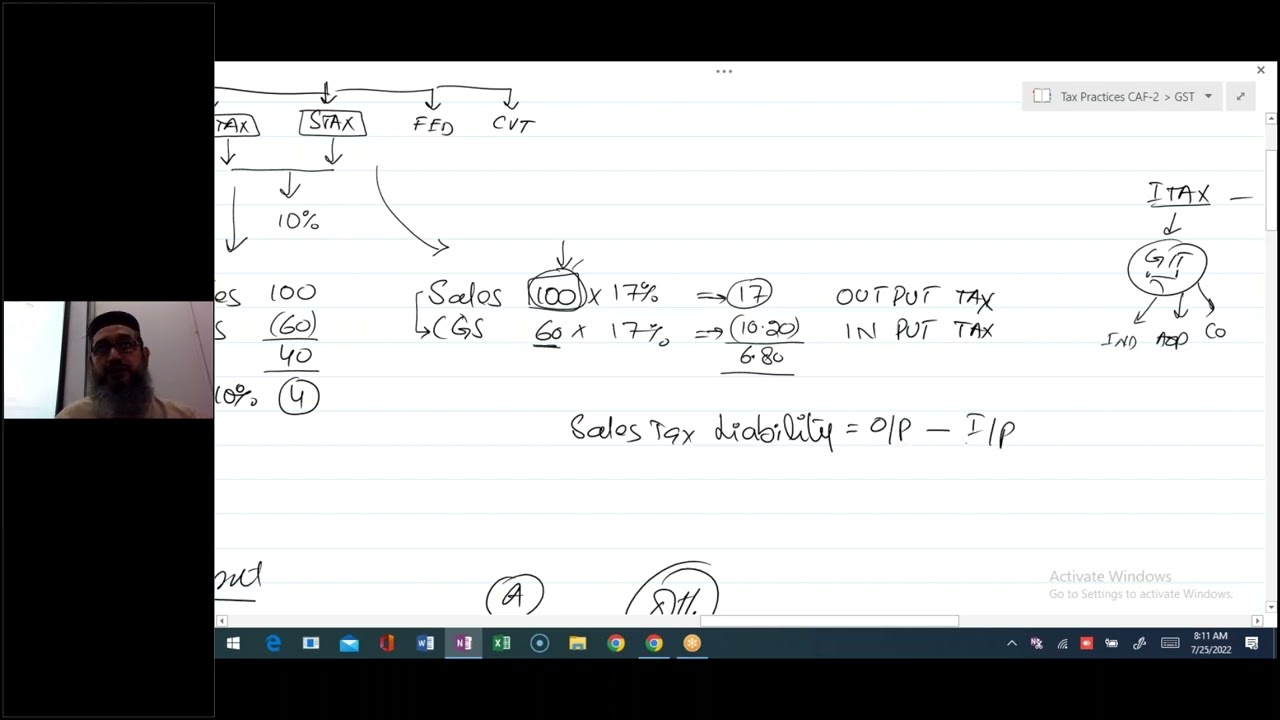 Tax Practices CAF-2 > GST
TAX STAX FED CVT
10%
ITAX —
GTT
IND AOP CO
100
(60)
40
10% 4
Sales 100 x 17% ⇒ 17 OUTPUT TAX
CGS 60 x 17% ⇒ (10.20) IN PUT TAX
6.80
Sales Tax Liability = O/P — I/P
A
Activate Windows
Go to Settings to activate Windows.
8:11 AM
7/25/2022